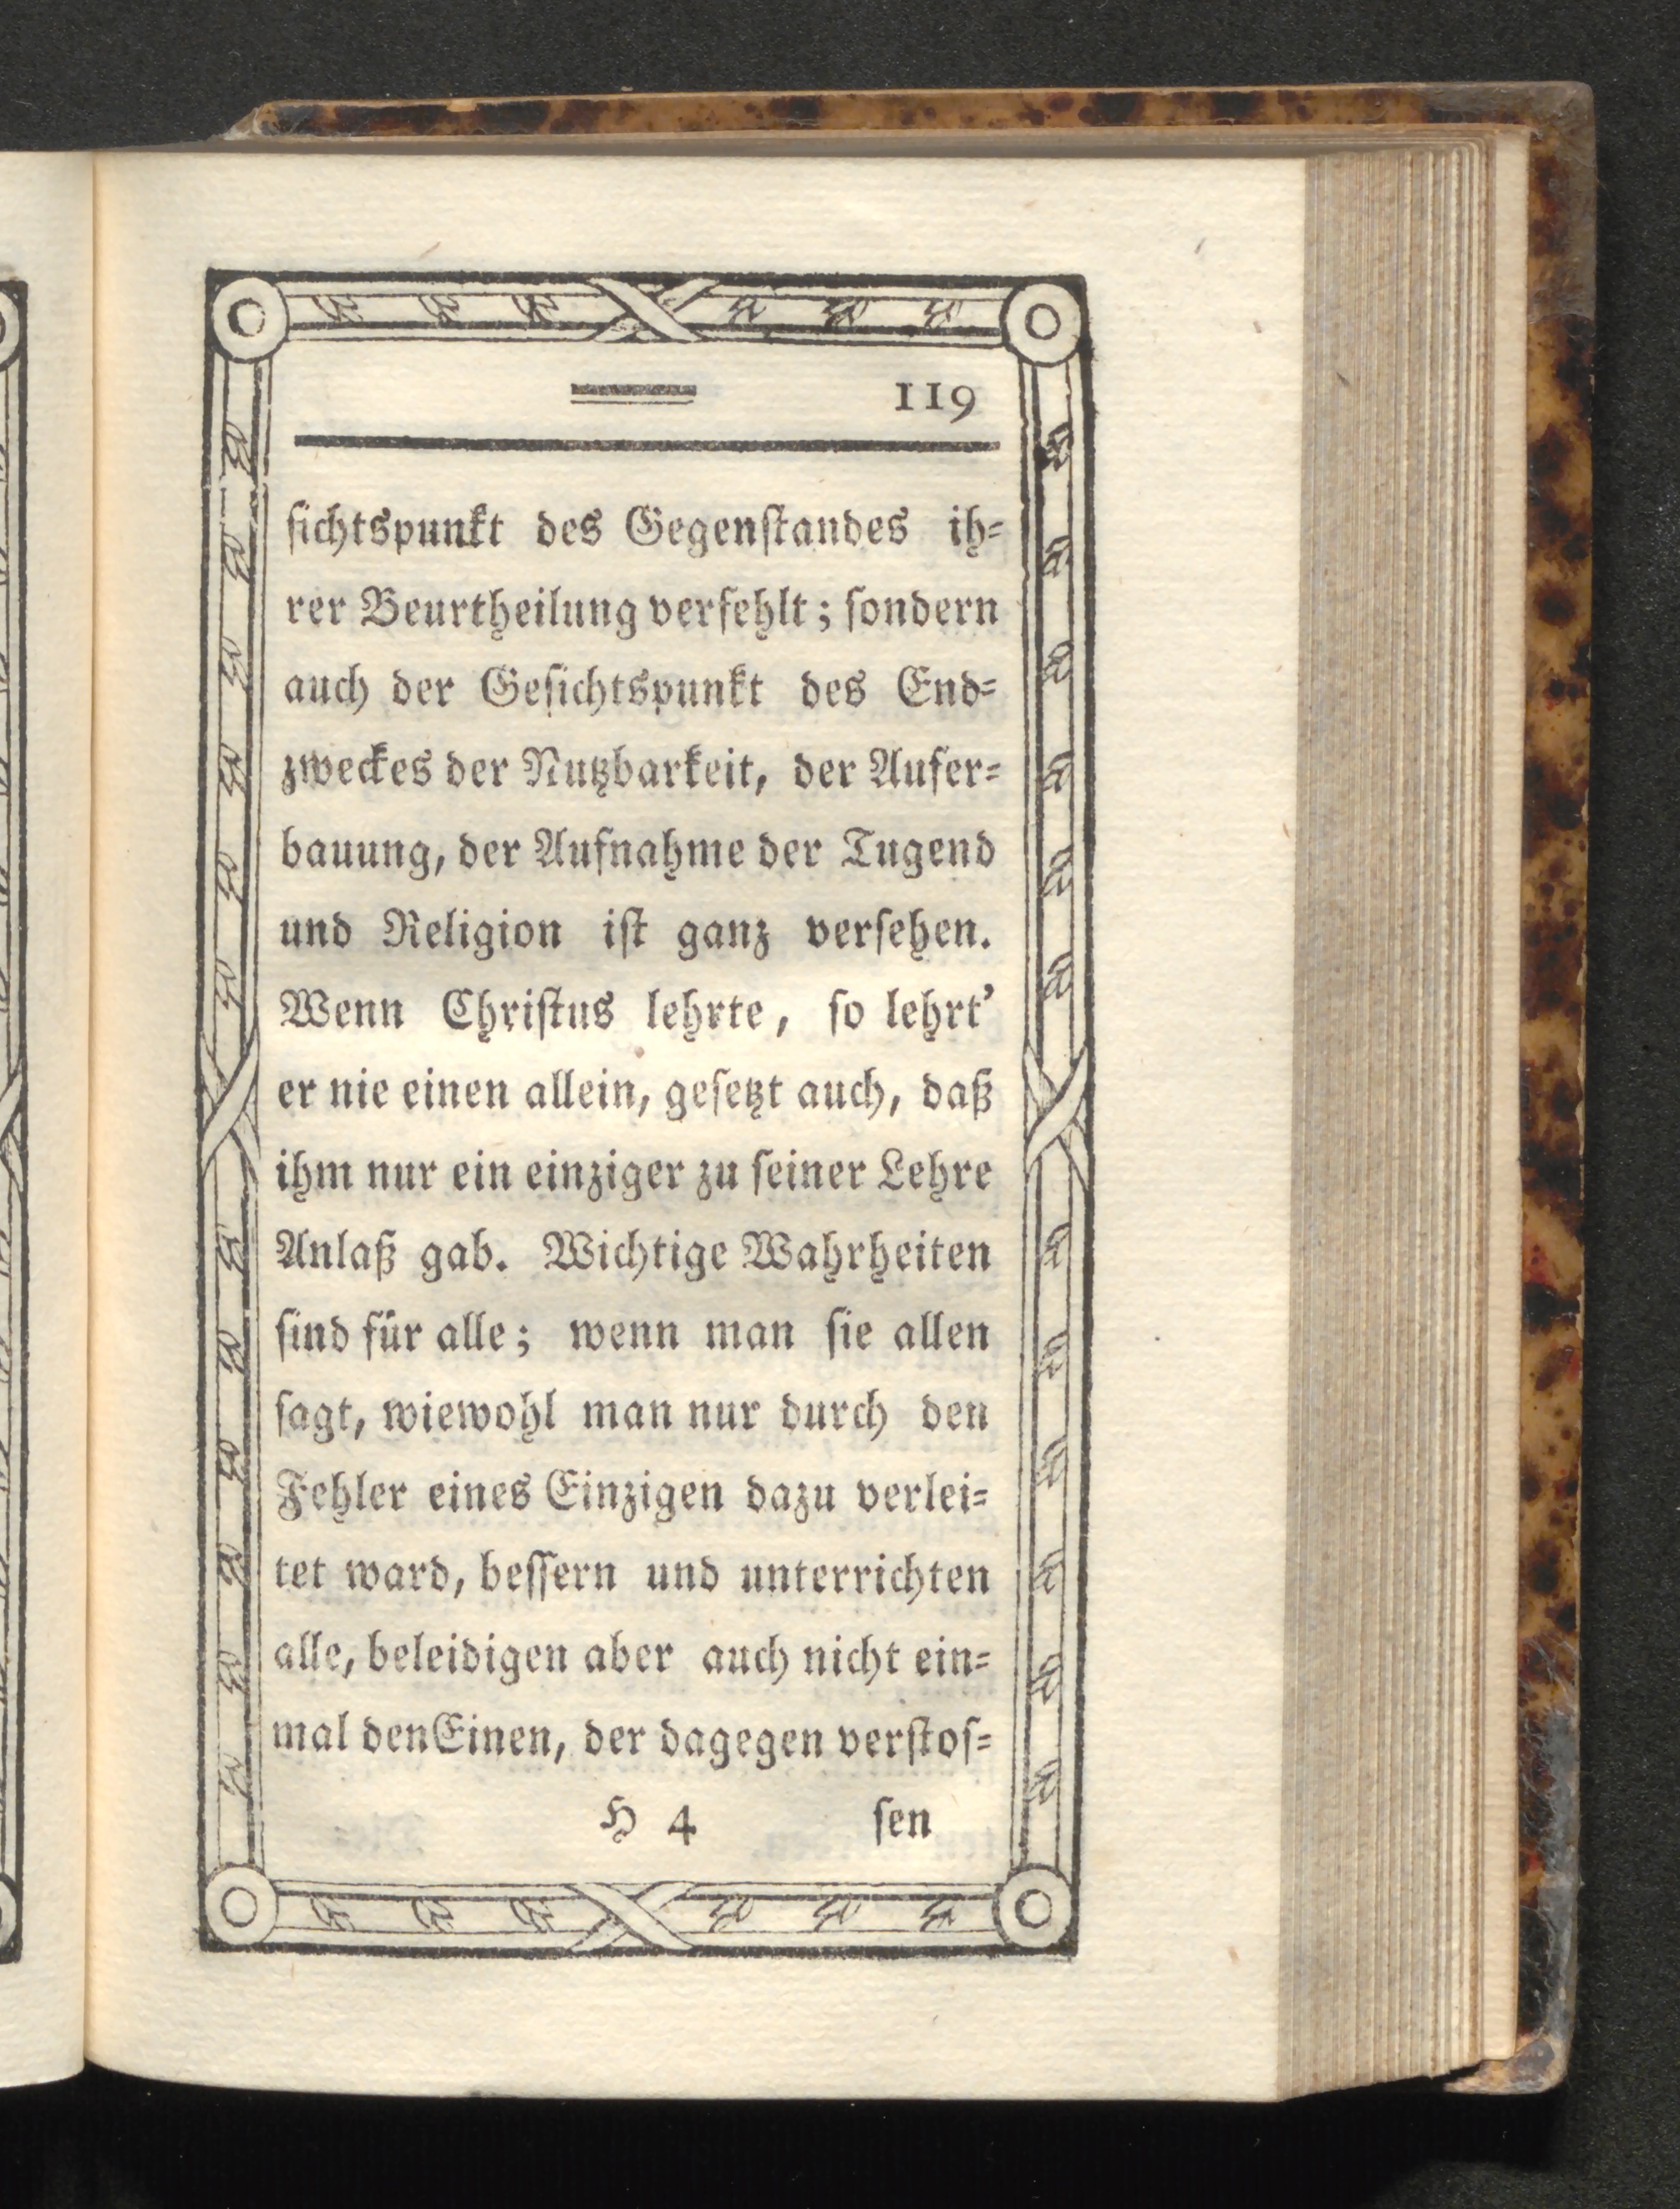 119
ſichtspunkt des Gegenſtandes ih⸗
rer Beurtheilung verfehlt; ſondern
auch der Geſichtspunkt des End⸗
zweckes der Nutzbarkeit, der Aufer⸗
bauung, der Aufnahme der Tugend
und Religion iſt ganz verſehen.
Wenn Chriſtus lehrte, ſo lehrt’
er nie einen allein, geſetzt auch, daß
ihm nur ein einziger zu ſeiner Lehre
Anlaß gab. Wichtige Wahrheiten
ſind für alle; wenn man ſie allen
ſagt, wiewohl man nur durch den
Fehler eines Einzigen dazu verlei⸗
tet ward, beſſern und unterrichten
alle, beleidigen aber auch nicht ein⸗
mal denEinen, der dagegen verſtoſ⸗
H 4 ſen